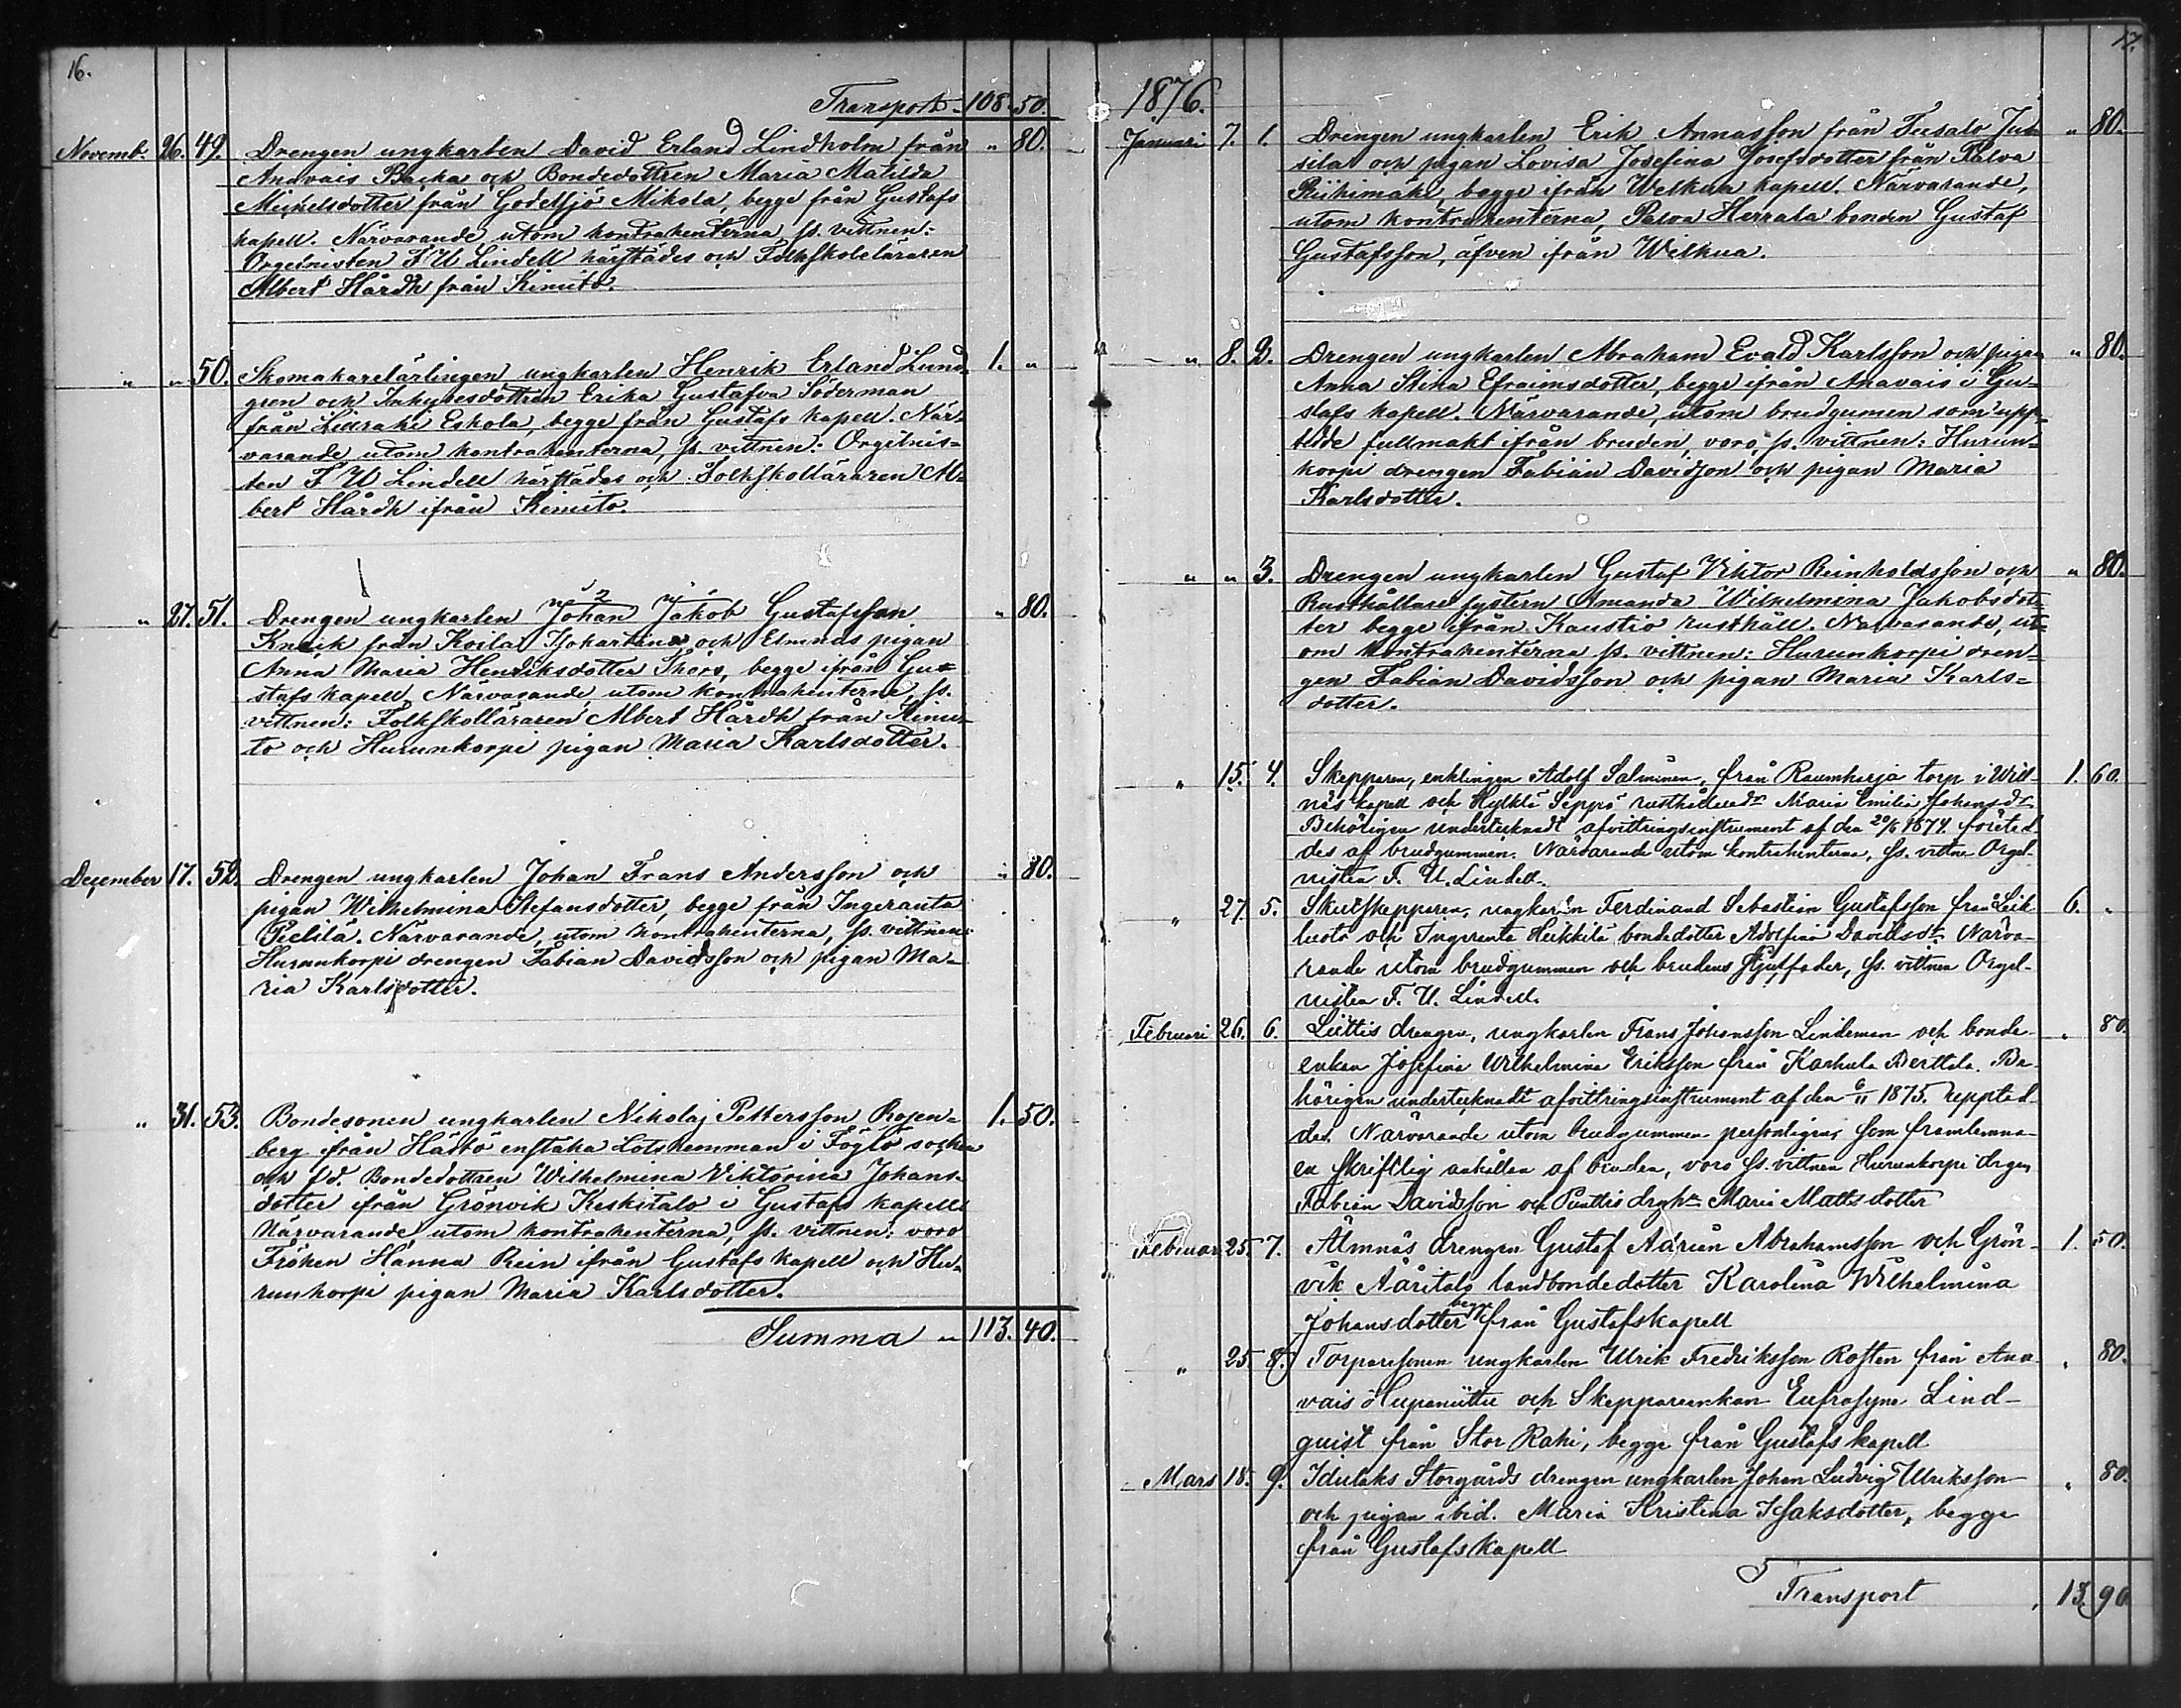 16.
Transport 108. 50.
Novemb. 26. 49. Drengen ungkarlen David Erland Lindholm från " 80.
Anavais Backa och Bondedottren Maria Matilda
Michelsdotter från Godelsjö Mikola, begge från Gustafs
kapell. Närvarande, utom kontrahenterna, ss. vittnen:
Orgelnisten F U Lindell härstädes och Folkskoleläraren
Albert Hårdh från Kimito.
" " 50. Skomakarelärlingen ungkarlen Henrik Erland Lund- 1. "
gren och Inhysesdottren Erika Gustafva Söderman
från Lillrahi Eskola, begge från Gustafs kapell. När-
varande utom kontrahenterna, ss. vittnen: Orgelnis-
ten F U Lindell härstädes och Folkskolläraren Al-
bert Hårdh ifrån Kimito.
" 27. 51. Drengen ungkarlen Johan Jakob Gustafsson " 80.
från Koila och Elmnäs pigan
Anna Maria Henriksdotter Thors, begge ifrån Gu-
stafs kapell. Närvarande, utom kontrahenterna, ss.
vittnen: Folkskolläraren Albert Hårdh från Kimi-
to och Hurunkorpi pigan Maria Karlsdotter.
December 17. 52. Drengen ungkarlen Johan Frans Andersson och " 80.
pigan Wilhelmina Stefansdotter, begge från Ingeranta
Pielilä. Närvarande, utom kontrahenterna, ss. vittnen:
Hurunkorpi drengen Fabian Davidsson och pigan Ma-
ria Karlsdotter.
" 31. 53. Bondesonen ungkarlen Nikolaj Pettersson Rosen- 1. 50.
berg ifrån Hästö enstaka Lotshemman i Föglö socken
och fd. Bondedottren Wilhelmina Viktorina Johans-
dotter ifrån Grönvik Keskitalo i Gustafs kapell.
Närvarande, utom kontrahenterna, ss. vittnen: voro
Fröken Hanna Rein ifrån Gustafs kapell och Hu-
runkorpi pigan Maria Karlsdotter.
Summa " 113. 40.
17.
1876.
Januari 7. 1. Drengen ungkarlen Erik Annasson från Teesalo Jus- " 80.
sila och pigan Lovisa Josefina Josefsdotter från Palva
Riihimäki, begge ifrån Welkua kapell. Närvarande,
utom kontrahenterna, Palva Herrala bonden Gustaf
Gustafsson, äfven ifrån Welkua.
" 8. 2. Drengen ungkarlen Abraham Evald Karlsson och pigan " 80.
Anna Stina Efraimsdotter, begge ifrån Anavais i Gu-
stafs kapell. Närvarande, utom brudgumen som upp-
tedde fullmakt ifrån bruden, voro ss. vittnen: Hurun-
korpi drengen Fabian Davidsson och pigan Maria
Karlsdotter.
" " 3. Drengen ungkarlen Gustaf Viktor Reinholdsson och " 80.
Rusthållare systern Amanda Wilhelmina Jakobsdot-
ter begge ifrån Kaustio rusthåll. Närvarande, ut-
om kontrahenterna ss. vittnen: Hurunkorpi dren-
gen Fabian Davidsson och pigan Maria Karls-
dotter.
" 15. 4. Skepparen, enklingen Adolf Salminen, från Raumharja torp i Will- 1. 60.
näs kapell och Hylkilä Seppä Maria Emilia Johansdr
Behörigen undertecknadt afvittringsinstrument af den 20/6 1874 företed-
des af brudgummen. Närvarande utom kontrahenterna, ss. vittne Orgel-
nisten F. U. Lindell.
" 27. 5. Skutskepparen, ungkarlen Ferdinand Sebastian Gustafsson från Leik- 6. "
luoto och Ingeranta Heikkilä bondedotter Adolfina Davidsdr. Närva-
rande utom brudgummen och brudens styffader, ss. vittnen Orgel-
nisten F. U. Lindell.
Februari 26. 6. drengen, ungkarlen Frans Johansson Lindeman och bonde- " 80.
enkan Josefina Wilhelmina Eriksson från Karhula Berttala. Be-
hörigen undertecknadt afvittringsinstrument af den 6/11 1875. uppted-
des. Närvarande utom brudgummen personligen, som framlemna-
en skriftlig anhållan af bruden, voro ss. vittnen Hurunkorpi drgen
Fabian Davidsson och Maria Mattsdotter
Februar 25. 7. Älmnäs drengen Gustaf Adrian Abrahamsson och Grön- 1. 50.
vik Ääritalo landbondedotter Karolina Wilhelmina
Johansdotter begge från Gustafskapell
" 25 8. Torparesonen ungkarlen Ulrik Fredriksson Rosten från Ana- " 80.
vais och Skepparenkan Eufrosyne Lind-
quist från Stor Rahi, begge från Gustafs kapell
Mars 18. 9. Idulaks Storgårds drengen ungkarlen Johan Ludvig Ulriksson " 80.
och pigan ibid. Maria Kristina Isaksdotter, begge
från Gustafs kapell
Transport 13. 90